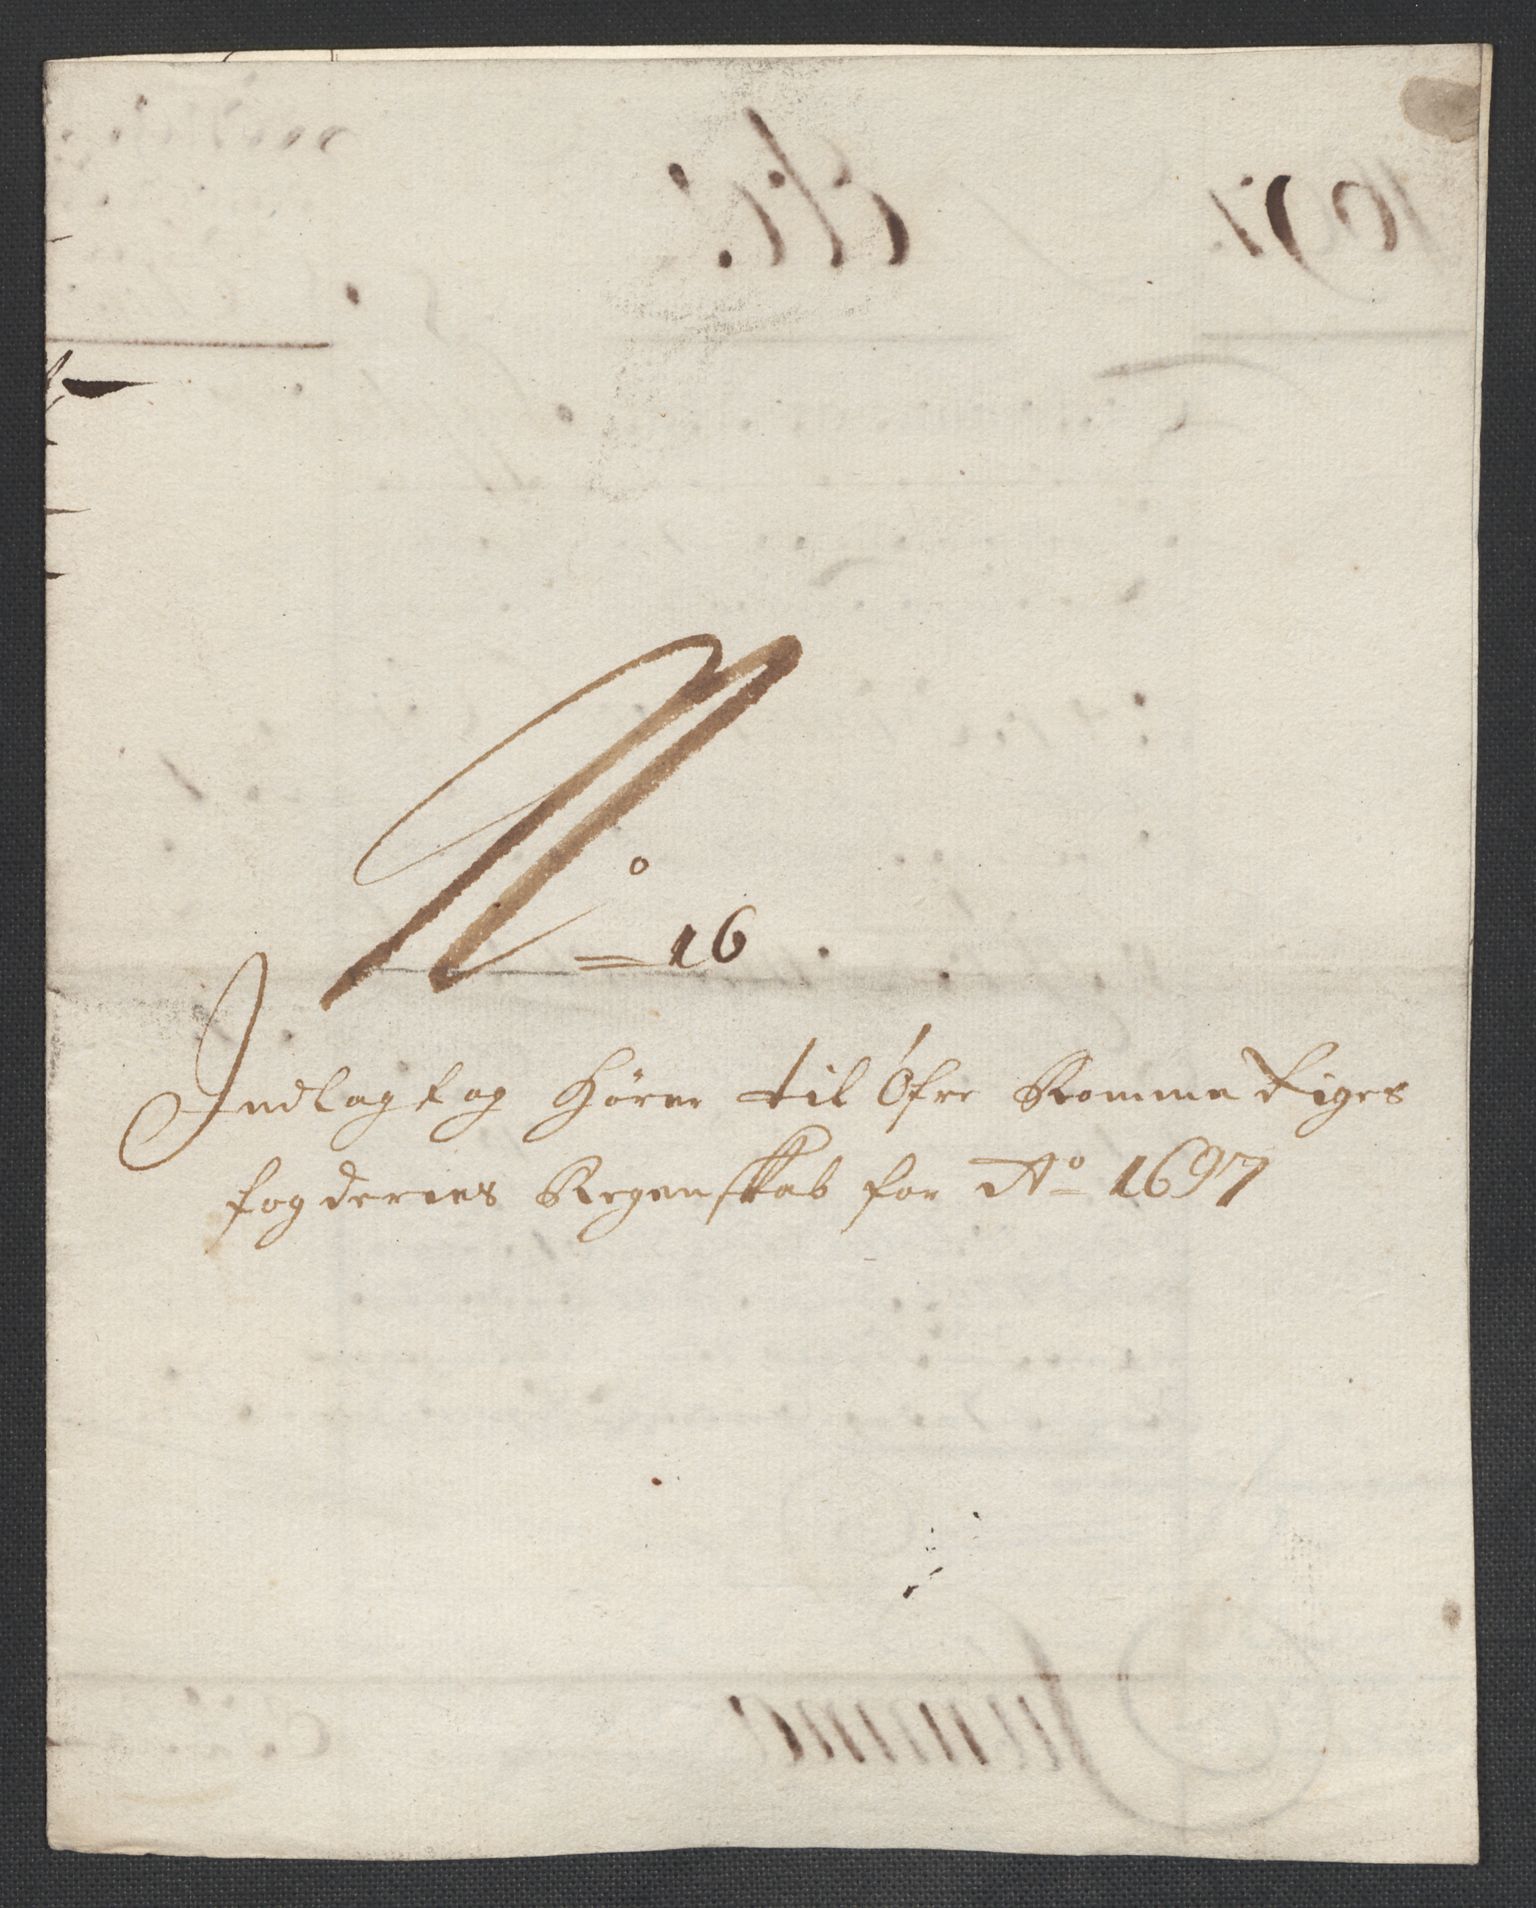 No 16
Indlagt og hörer til Öfre Romme Riges
fogderies Regenskab for Ao 1697